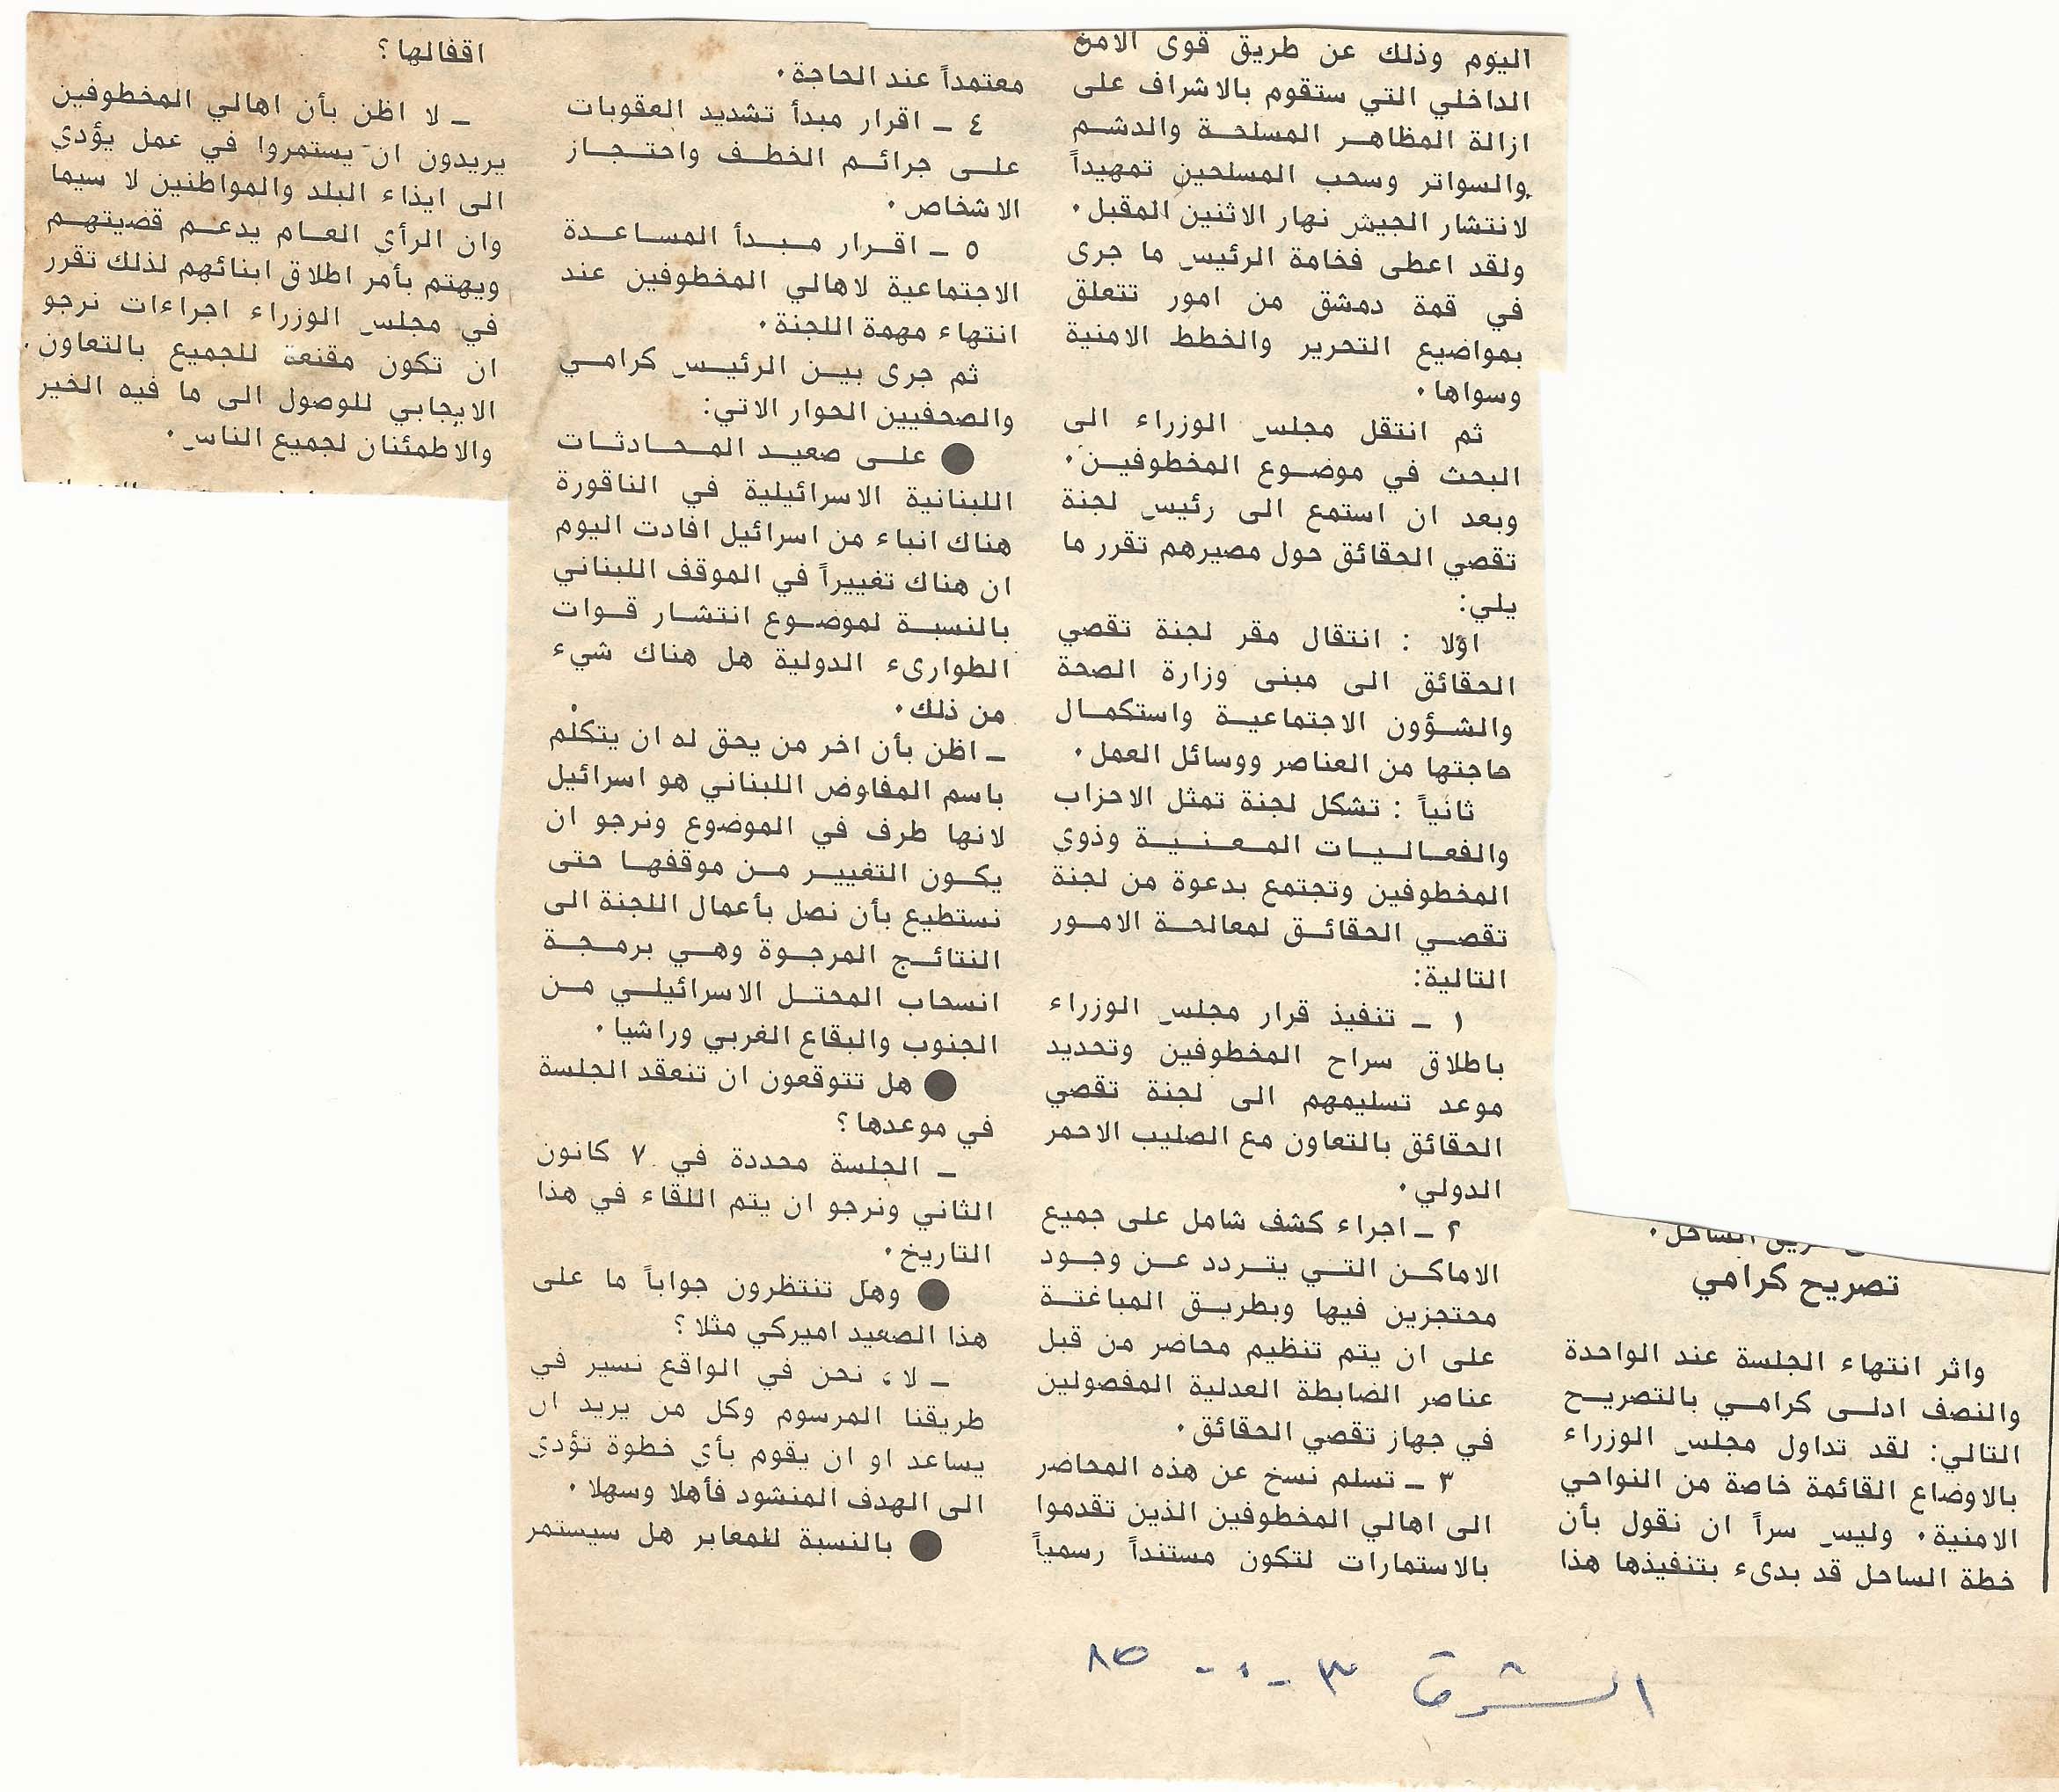 الساحل.
تصريح كرامي
واثر انتهاء الجلسة عند الواحدة
والنصف ادلى كرامي بالتصريح
التالي: لقد تداول مجلس الوزراء
بالاوضاع القائمة خاصة من النواحي
الامنية. وليس سراً ان نقول بأن
خطة الساحل قد بدىء بتنفيذها هذا
اليوم وذلك عن طريق قوى الامن
الداخلي التي ستقوم بالاشراف على
ازالة المظاهر المسلحة والدشم
والسواتر وسحب المسلحين تمهيداً
لانتشار الجيش نهار الاثنين المقبل.
ولقد اعطى فخامة الرئيس ما جرى
في قمة دمشق من امور تتعلق
بمواضيع التحرير والخطط الامنية
وسواها.
ثم انتقل مجلس الوزراء الى
البحث في موضوع المخطوفين.
وبعد ان استمع الى رئيس لجنة
تقصي الحقائق حول مصيرهم تقرر ما
يلي:
اولا : انتقال مقر لجنة تقصي
الحقائق الى مبنى وزارة الصحة
والشؤون الاجتماعية واستكمال
حاجتها من العناصر ووسائل العمل.
ثانياً : تشكل لجنة تمثل الاحزاب
والفعاليات المعنية وذوي
المخطوفين وتجتمع بدعوة من لجنة
تقصي الحقائق لمعالحة الامور
التالية:
١ ـ تنفيذ قرار مجلس الوزراء
باطلاق سراح المخطوفين وتحديد
موعد تسليمهم الى لجنة تقصي
الحقائق بالتعاون مع الصليب الاحمر
الدولي.
٢ ـ اجراء كشف شامل على جميع
الاماكن التي يتردد عن وجود
محتجزين فيها وبطريق المباغتة
على ان يتم تنظيم محاضر من قبل
عناصر الضابطة العدلية المفصولين
في جهاز تقصي الحقائق.
٣ ـ تسلم نسخ عن هذه المحاضر
الى اهالي المخطوفين الذين تقدموا
بالاستمارات لتكون مستنداً رسمياً
معتمداً عند الحاجة.
٤ ـ اقرار مبدأ تشديد العقوبات
على جرائم الخطف واحتجاز
الاشخاص.
٥ ـ اقرار مبدأ المساعدة
الاجتماعية لاهالي المخطوفين عند
انتهاء مهمة اللجنة.
ثم جرى بين الرئيس كرامي
والصحفيين الحوار الاتي:
● على صعيد المحادثات
اللبنانية الاسرائيلية في الناقورة
هناك انباء من اسرائيل افادت اليوم
ان هناك تغييراً في الموقف اللبناني
بالنسبة لموضوع انتشار قوات
الطوارىء الدولية هل هناك شيء
من ذلك.
ـ اظن بأن اخر من يحق له ان يتكلم
باسم المفاوض اللبناني هو اسرائيل
لانها طرف في الموضوع ونرجو ان
يكون التغيير من موقفها حتى
نستطيع بأن نصل بأعمال اللجنة الى
النتائج المرجوة وهي برمجة
انسحاب المحتل الاسرائيلي من
الجنوب والبقاع الغربي وراشيا.
● هل تتوقعون ان تنعقد الجلسة
في موعدها؟
ـ الجلسة محددة في ٧ كانون
الثاني ونرجو ان يتم اللقاء في هذا
التاريخ.
● وهل تنتظرون جواباً ما على
هذا الصعيد اميركي مثلا؟
ـ لا، نحن في الواقع نسير في
طريقنا المرسوم وكل من يريد ان
يساعد او ان يقوم بأي خطوة تؤدي
الى الهدف المنشود فأهلا وسهلا.
● بالنسبة للمعابر هل سيستمر
اقفالها؟
ـ لا اظن بأن اهالي المخطوفين
يريدون ان يستمروا في عمل يؤدي
الى ايذاء البلد والمواطنين لا سيما
وان الرأي العام يدعم قضيتهم
ويهتم بأمر اطلاق ابنائهم لذلك تقرر
في مجلس الوزراء اجراءات نرجو
ان تكون مقنعة للجميع بالتعاون
الايجابي للوصول الى ما فيه الخير
والاطمئنان لجميع الناس.
الشرق ٣ - ١ - ٨٥